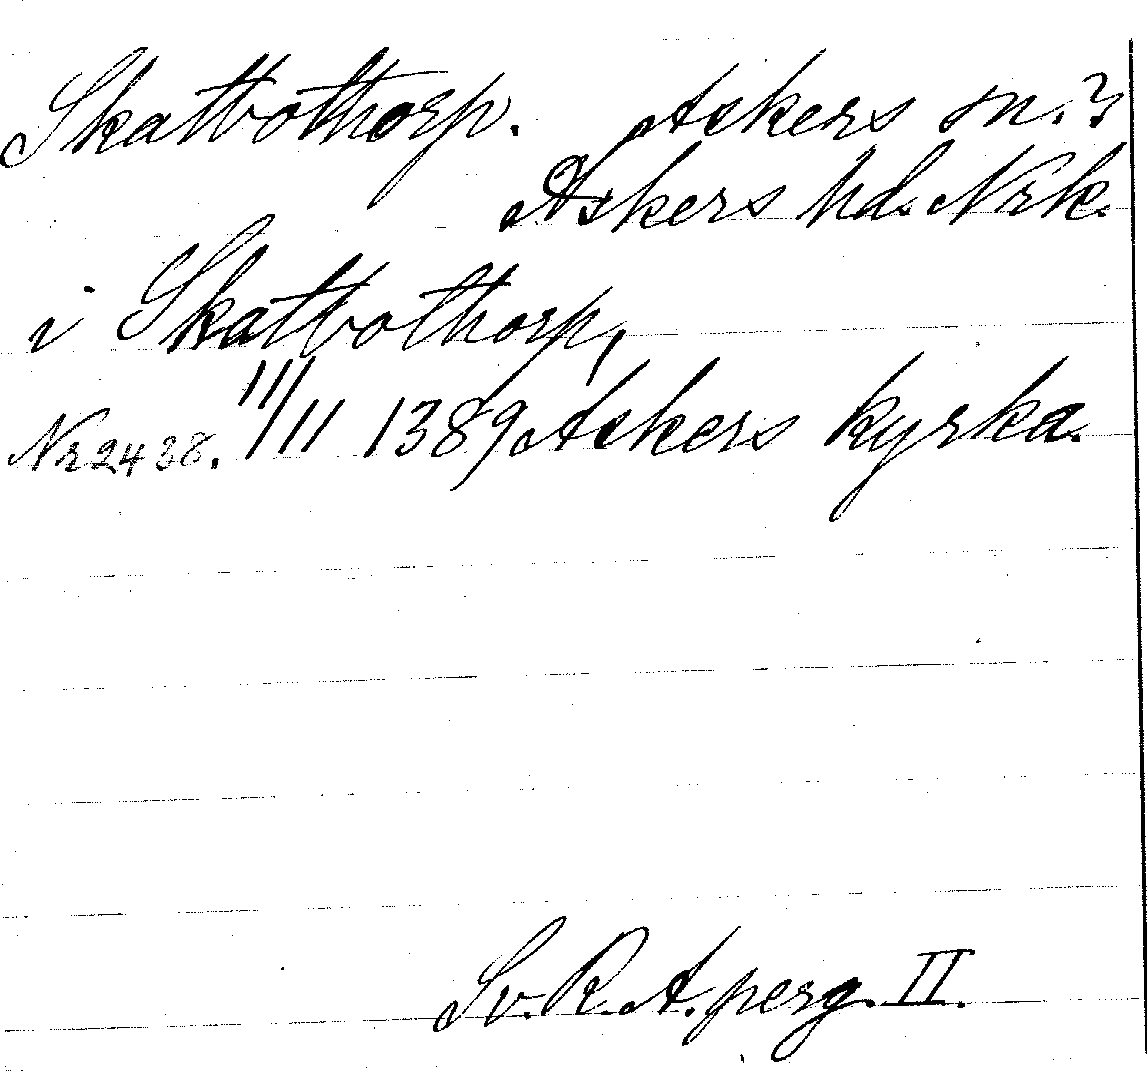 Skatbothorp. Askers sn.?
Askers hd. Nrk.
i Skatbothorp,
Nr 2438. 11/11 1389 Askers kyrka.
Sv. R. A. perg. II.